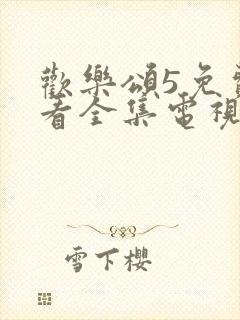 歡樂頌5免費
看全集電視
雪下櫻